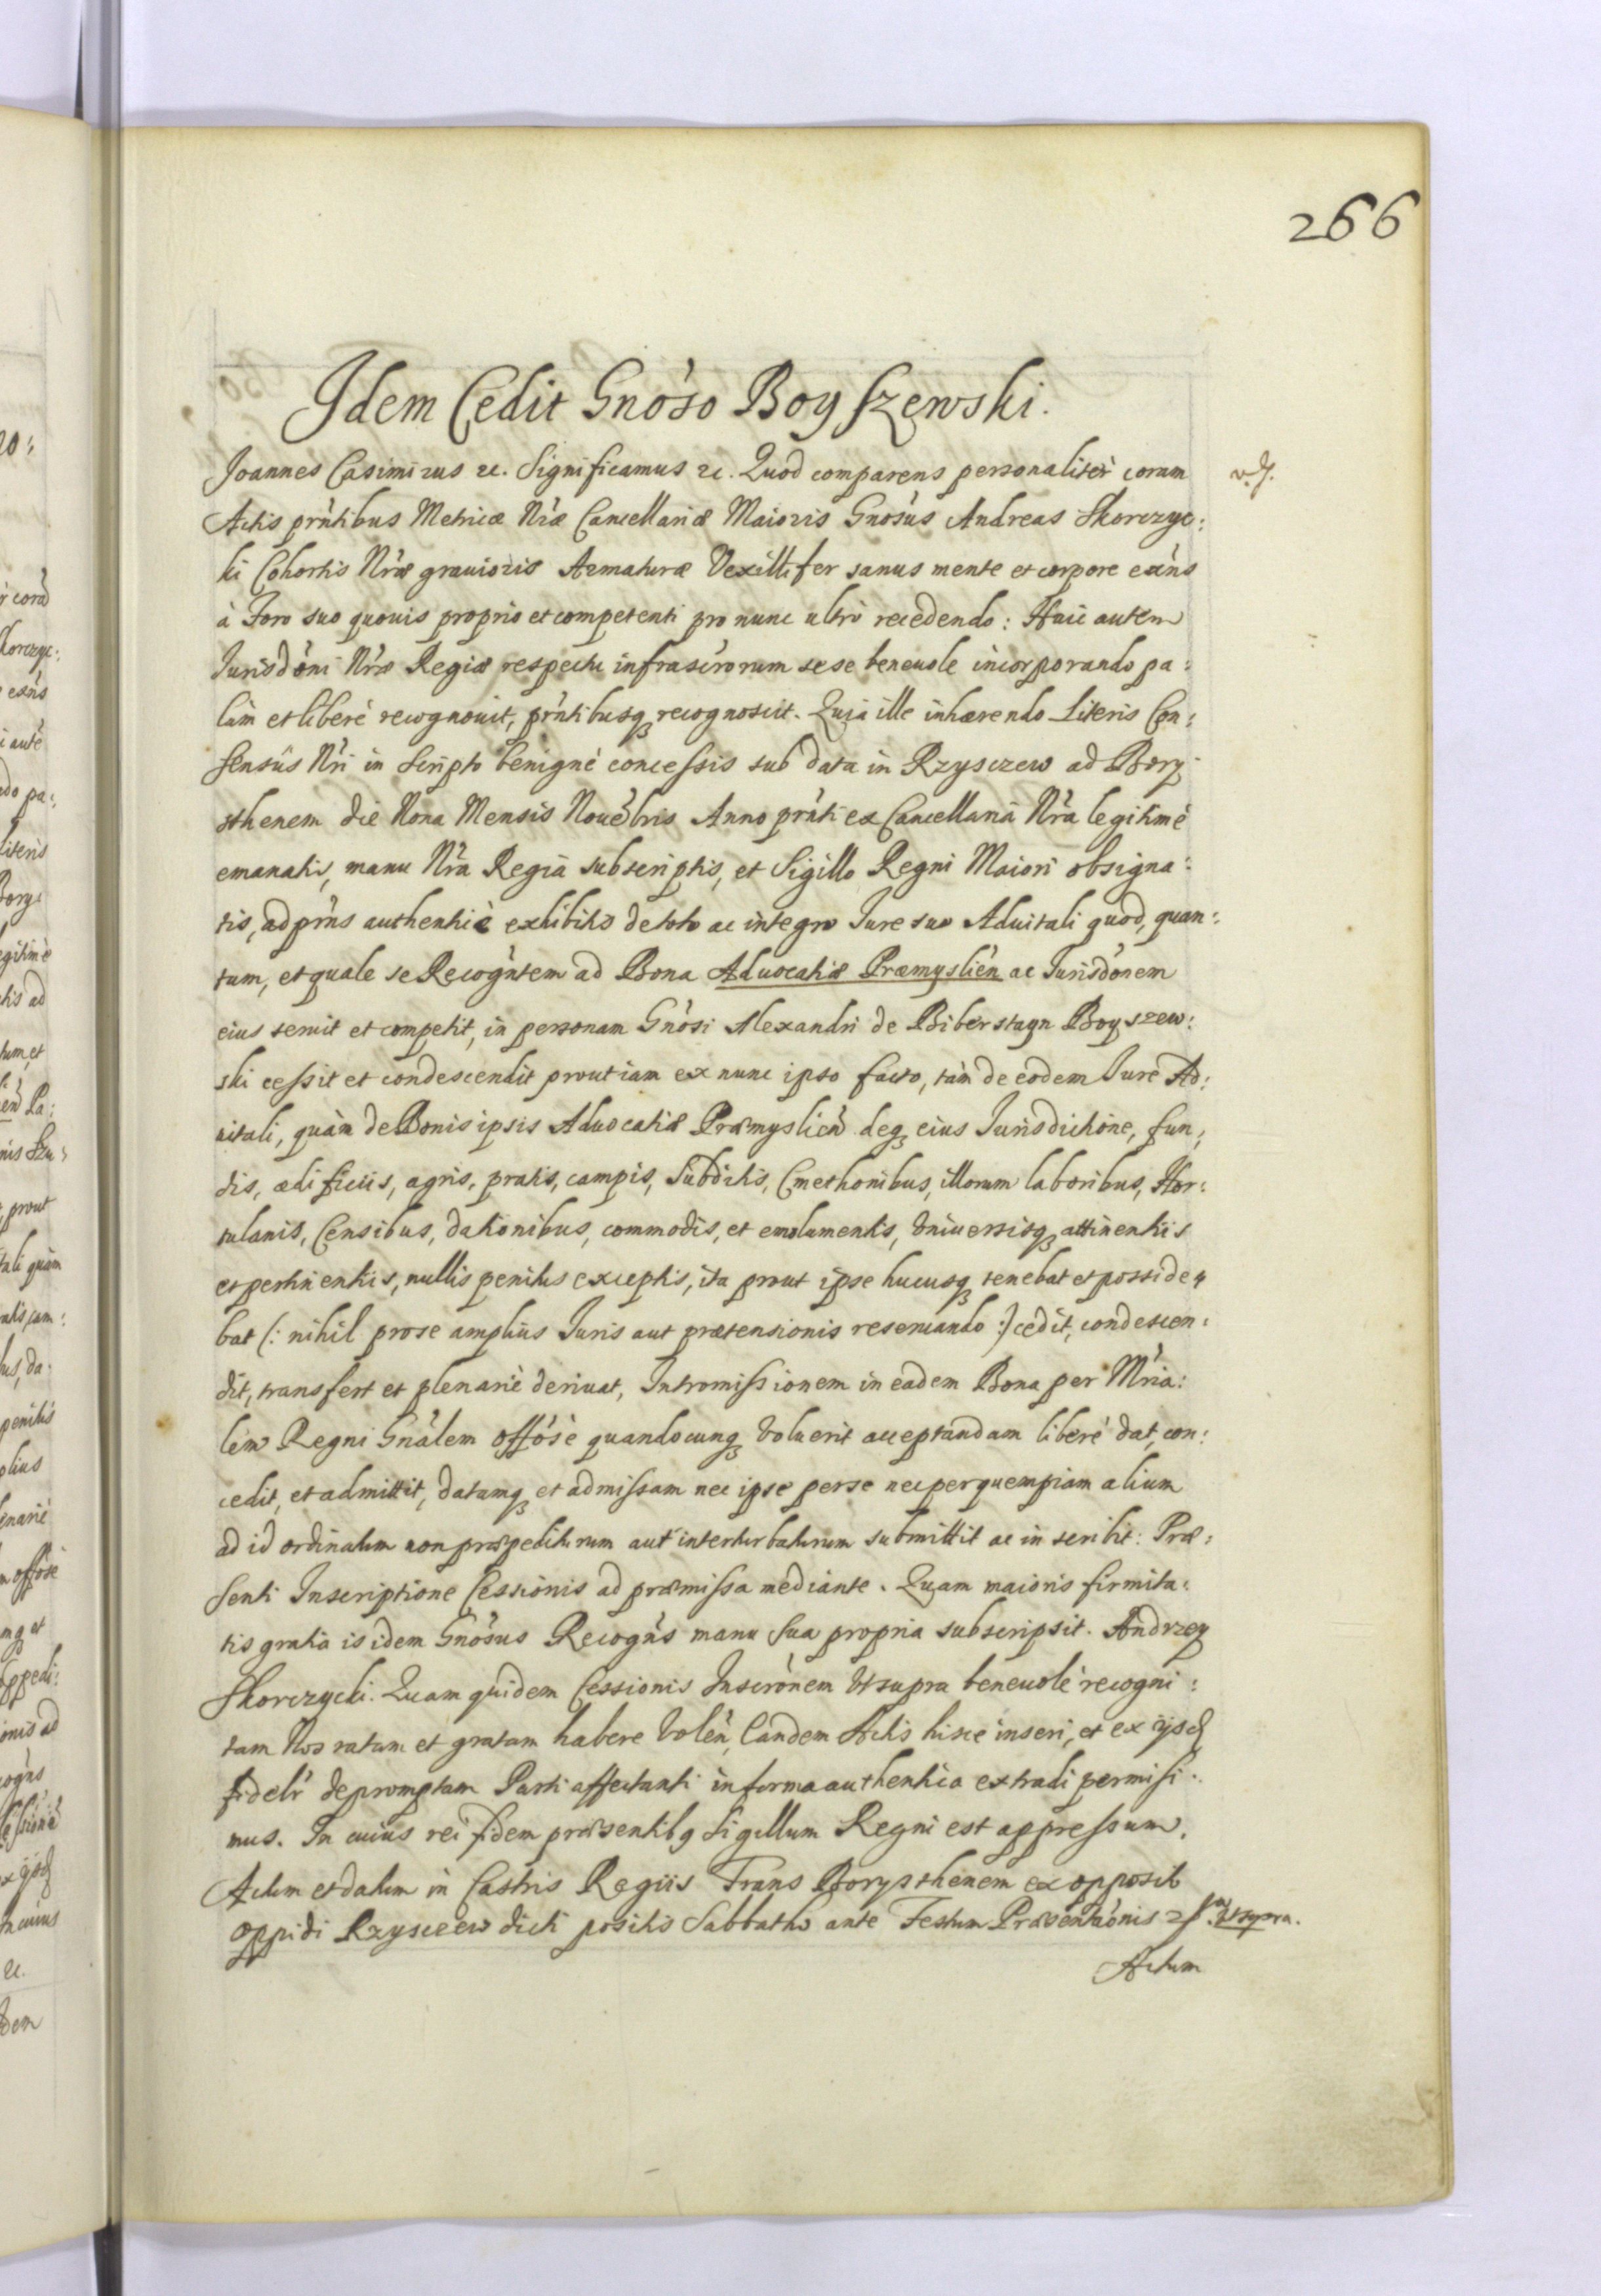 266
Idem Cedit Gnóso Boyszewski.
Joannes Casimirus etc. Significamus etc. Quod comparens personalitèr coram
v.d.
Actis prńtibus Metricæ Nrǽ Cancellariæ Maioris Gnósus Andreas Skorczyc:
ki Cohortis Nrǽ grauioris Armaturæ Vexillifer sanus mente et corpore exńs
à Foro suo quouis proprio et competenti pro nunc ultrò recedendo: Huic autem
Jurisdóni Nrǽ Regiæ respectu infrascrórum sese beneuole incorporando pa:
làm et liberè recognouit, prńtibusq recognoscit. Quia ille inhærendo Literis Con:
sensûs Nrí in Scripto benignè concessis sub data in Rzysczew ad Bory:
sthenem die Nona Mensis Nouébris Anno prńti ex Cancellariâ Nrá legitimè
emanatis, manu Nrá Regiâ subscriptis, et Sigillo Regni Maiori obsigna:
tis, ad prńs authenticè exhibitis de toto ac integro Jure suo Aduitali quod, quan:
tum, et quale se Recogńtem ad Bona Aduocatiæ Præmysliéń ac Jurisdónem
eius seruit et competit, in personam Gnósi Alexandri de Biberstayn Boyszew:
ski cessit et condescendit prout iam ex nunc ipso facto, tàm de eodem Jure Ad:
uitali, quàm de Bonis ipsis Aduocatiæ Præmysliéń deq eius Jurisdictione, fun:
dis, ædificiis, agris, pratis, campis, Subditis, Cmethonibus, illorum laboribus, Hor:
tulanis, Censibus, dationibus, commodis, et emolumentis, Vniuersisq attinentiis
et pertinentiis, nullis penitus exceptis, ita prout ipse hucusq tenebat et posside:
bat (: nihil prose amplius Juris aut prætensionis reseruando :) cedit, condescen:
dit, transfert et plenariè deriuat, Intromissionem in eadem Bona per Mría:
lem Regni Gnálem offósè quandocunq Voluerit acceptandam liberè dat, con:
cedit, et admittit, datamq et admissam nec ipse perse nec per quempiam alium
ad id ordinatum non præpediturum aut interturbaturum submittit ac inscribit: Præ:
senti Inscriptione Cessionis ad præmissa mediante. Quam maioris firmita:
tis gratia is idem Gnósus Recogńs manu sua propria subscripsit. Andrzey
Skorczycki. Quam quidem Cessionis Inscrónem Vt supra beneuolè recogni:
tam Nos ratam et gratam habere Voléń, Eandem Actis hisce inseri, et ex ijsd
fidelŕ depromptam Parti affectanti in forma authentica extradi permisi:
mus. In cuius rei fidem præsentibq Sigillum Regni est appressum.
Actum et datum in Castris Regiis Trans Borysthenem ex opposito
oppidi Rzysczew dicti positis Sabbatho ante Festum Præsentaónis etc. Vt supra.
Actum